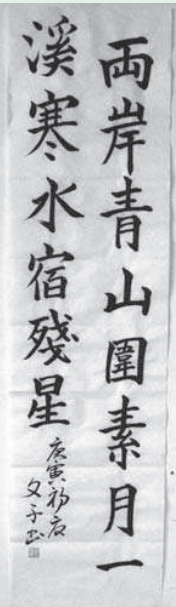 両岸青山圍素月一
溪寒水宿殘星
庚寅初夏
文子書